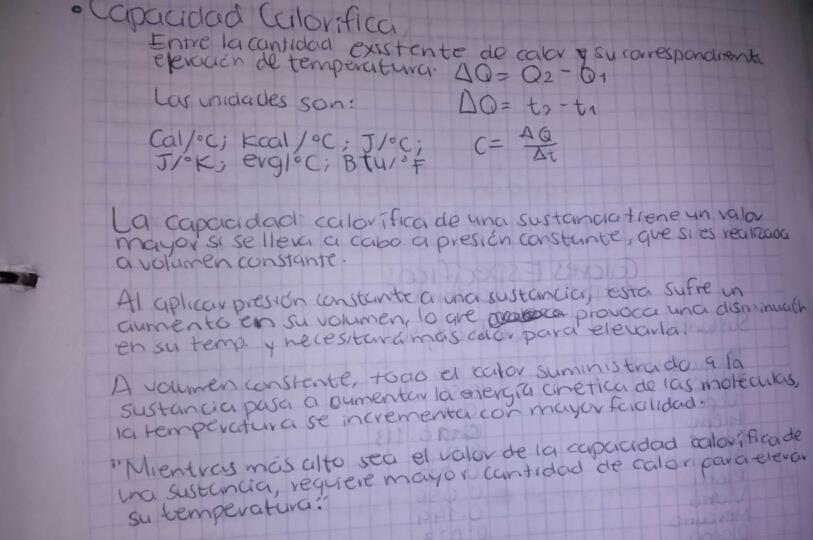 • Capacidad Calorifica
Entre la cantidad existente de calor y su correspondiente
elevación de temperatura. ΔQ = Q2 - Q1
Las unidades son: ΔQ = t2 - t1
Cal/°C; Kcal/°C; J/°C; C = ΔQ/Δt
J/°K; erg/°C; Btu/°F
La capacidad calorífica de una sustancia tiene un valor
mayor si se lleva a cabo a presión constante, que si es realizada
a volumen constante.
Al aplicar presión constante a una sustancia, esta sufre un
aumento en su volumen, lo que provoca una disminución
en su temp. y necesitará más calor para elevarla.
A volumen constante, todo el calor suministrado a la
sustancia pasa a aumentar la energía cinética de las moléculas,
la temperatura se incrementa con mayor facilidad.
"Mientras más alto sea el valor de la capacidad calorífica de
una sustancia, requiere mayor cantidad de calor para elevar
su temperatura."